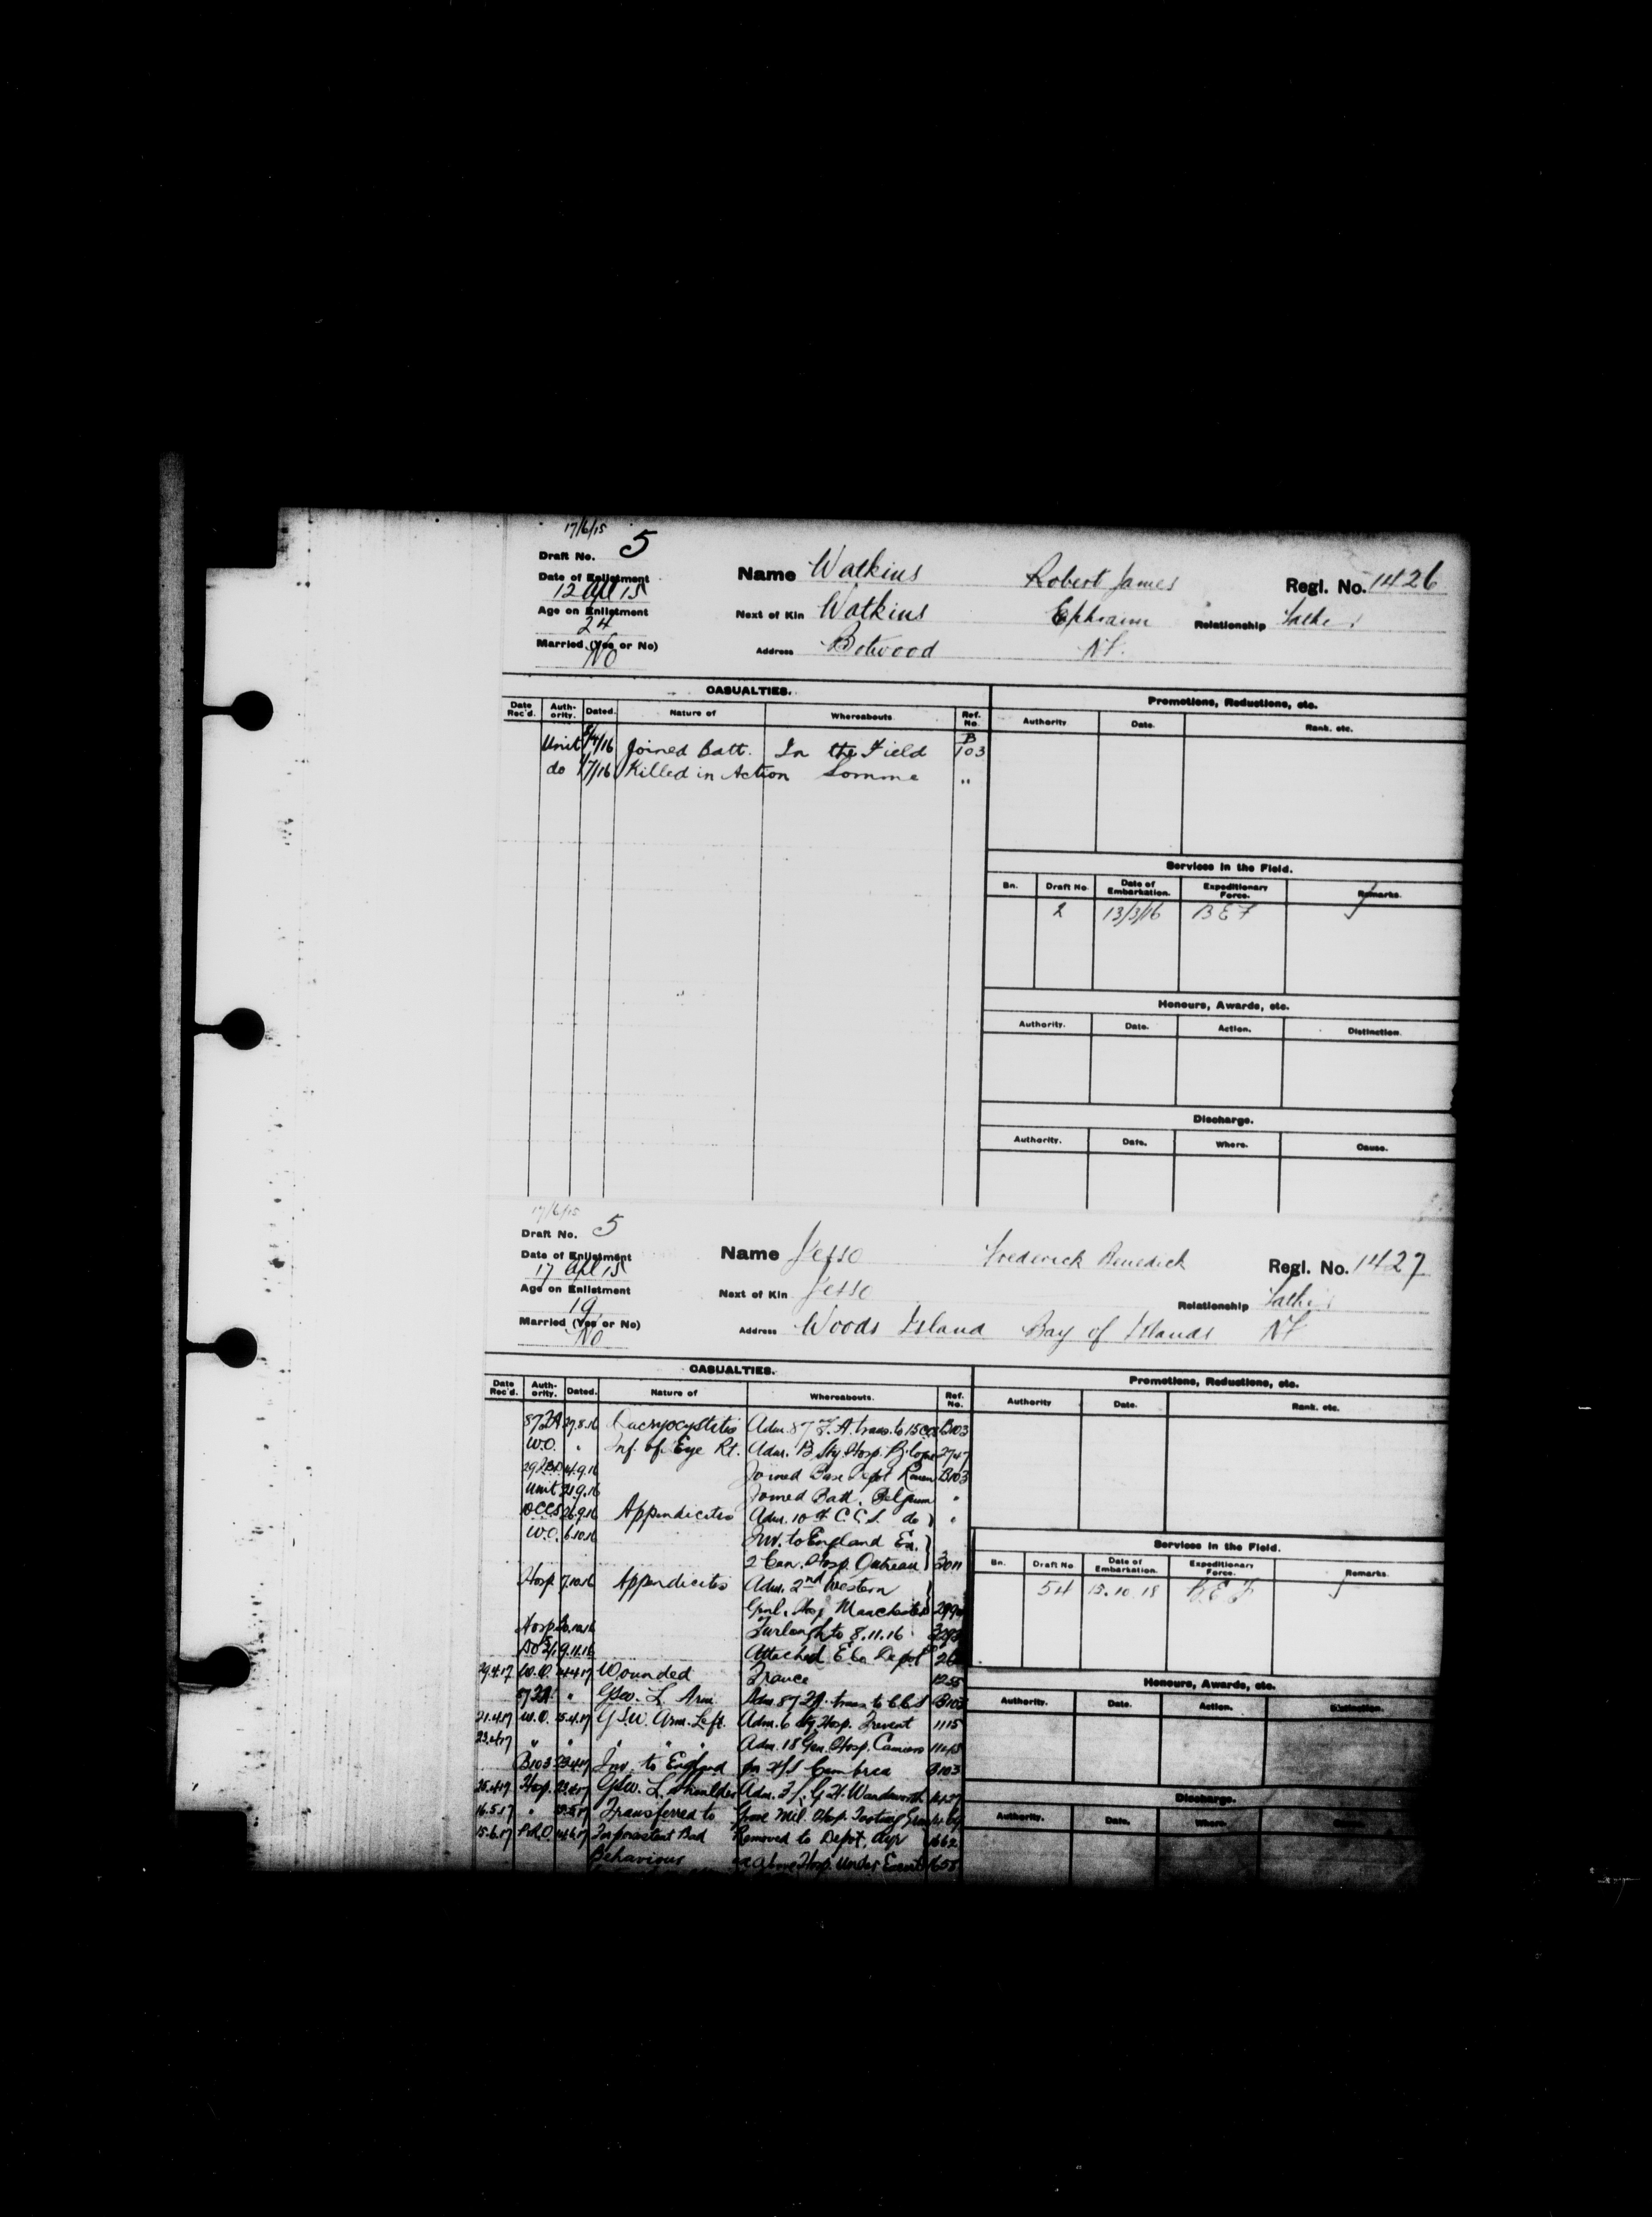 17/6/15
Draft No. 5
Date of Enlistment
12 Apl 15
Age on Enlistment
24
Married (Yes or No)
No
Name Watkins Robert James Regl. No. 1426
Next of Kin Watkins Ephraim Relationship Father
Address Botwood Nf.
CASUALTIES.
Date Rec'd. Auth-ority. Dated. Nature of Whereabouts. Ref. No.
Unit /4/16 Joined Batt. In the Field B 103
do 1/7/16 Killed in Action Somme "
Promotions, Reductions, etc.
Authority Date. Rank. etc.
Services in the Field.
Bn. Draft No. Date of Embarkation. Expeditionary Force. Remarks.
2 13/3/16 B E F
Honours, Awards, etc.
Authority. Date. Action. Distinction.
Discharge.
Authority. Date. Where. Cause.
17/6/15
Draft No. 5
Date of Enlistment
17 Apl 15
Age on Enlistment
19
Married (Yes or No)
No
Name Jesso Frederick Benedick Regl. No. 1427
Next of Kin Jesso Relationship Father
Address Woods Island Bay of Islands Nf
CASUALTIES.
Date Rec'd. Auth-ority. Dated. Nature of Whereabouts. Ref. No.
87 FA 27.8.16 Dacryocystitis Adm. 87 F.A. trans. to 15 CCS B103
W.O. " Inf. of Eye Rt. Adm. 13 Sty Hosp. B'logne 2747
4.9.16 Joined Base Depot Rouen B103
Unit 21.9.16 Joined Batt. Belgium "
26.9.16 Appendicitis Adm. 10 C.C.S. do "
W.O. 6.10.16 Inv. to England Ex.
2 Can. Hosp. Outreau 3011
Hosp 7.10.16 Appendicitis Adm. 2nd Western
Gnl. Hosp Manchester
Hosp Furlough to 8.11.16
9.11.16 Attached E Co Depot
29.4.17 W.O. Wounded France 1255
87 FA " GSW. L. Arm Adm. 87 FA. trans to CCS B103
21.4.17 W.O. 15.4.17 GSW Arm. Left Adm. 6 Sty Hosp. Frevent 1115
23.4.17 " " " " " Adm. 18 Gen. Hosp. Camiers
B103 Inv. to England per H/S Cambria B103
25.4.17 Hosp. GSW. L. Shoulder Adm. 3/. G.H. Wandsworth
16.5.17 " Transferred to Grove Mil. Hosp. Tooting
15.6.17 P.&.O Inpersistent Bad Removed to Depot, Ayr 1662
Behaviour Hosp. under Escort 1658
Promotions, Reductions, etc.
Authority Date. Rank. etc.
Services in the Field.
Bn. Draft No Date of Embarkation. Expeditionary Force. Remarks.
54 15.10.18 B.E.F
Honours, Awards, etc.
Authority. Date. Action. Distinction.
Discharge.
Authority. Date. Where.